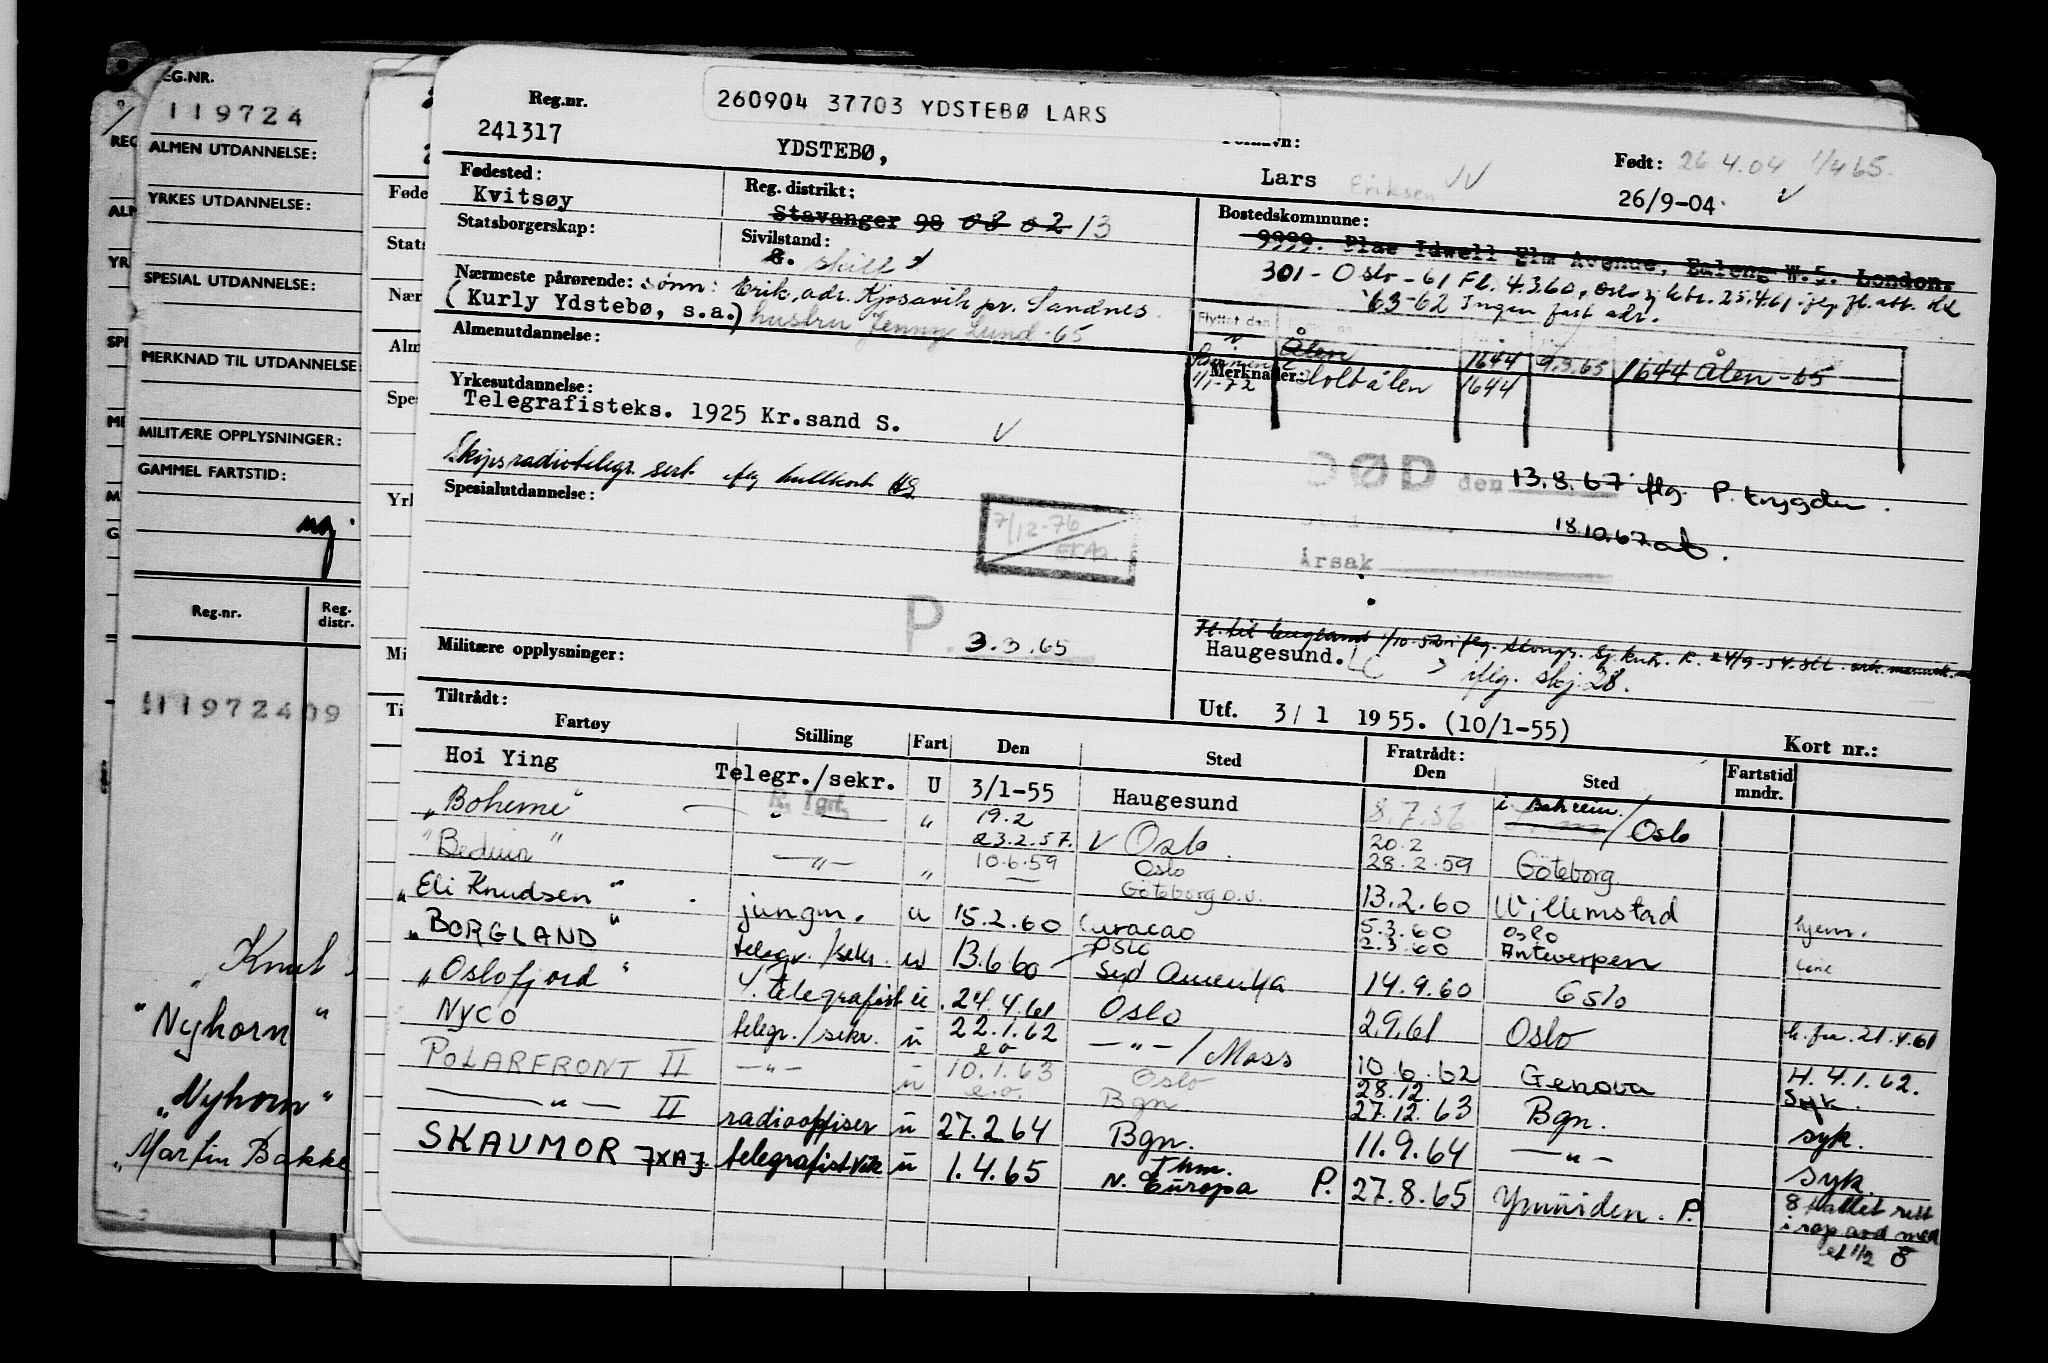 EG.NR.
119724
ALMEN UTDANNELSE:
YRKES UTDANNELSE:
SPESIAL UTDANNELSE:
MERKNAD TIL UTDANNELSE
MILITÆRE OPPLYSNINGER:
GAMMEL FARTSTID:
Reg.nr.
Reg. distr.
11972409
Knut
"Nyhorn"
"Nyhorn"
"Martin Bakke
Reg.nr.
260904 37703 YDSTEBØ LARS
241317
YDSTEBØ,
Lars Eriksen
Født: 26 4.04 1/4 65.
26/9-04
Fødested:
Kvitsøy
Reg. distrikt:
Stavanger 98 03 02 13
Bostedskommune:
9999. Idwell Elm Avenue, Ealeng W.5. London.
Statsborgerskap:
Sivilstand:
skilt
301 - Oslo - 61 Fl. 4.3.60,
63-62 Ingen fast adr.
Nærmeste pårørende: sønn: Erik, adr. Kjosavik pr. Sandnes
(Kurly Ydstebø, s.a.) hustru Jenny Lund-65
Flyttet den
Ålen 1644 9.3.65 1644 Ålen-65
Almenutdannelse:
Merknader:
1/1-72 Holtålen 1644
Yrkesutdannelse:
Telegrafisteks. 1925 Kr.sand S.
Skipsradiotelegr. sert. iflg hullkort
Spesialutdannelse:
DØD den 13.8.67 iflg. P. trygden.
18.10.67
Årsak
7/12-76
P. 3.3.65
Militære opplysninger:
Haugesund.
iflg. skj. 28.
Tiltrådt:
Utf. 3/ 1 1955. (10/1-55)
Kort nr.:
Fartøy Stilling Fart Den Sted Fratrådt: Den Sted Fartstid mndr.
Hoi Ying Telegr./sekr. U 3/1-55 Haugesund 8.7.56 i Bahrein / Oslo
"Boheme" " " 19.2 23.2.57. Oslo 20.2 28.2.59 Göteborg
"Beduin" — " — " 10.6.59 Oslo Göteborg 13.2.60 Willemstad
"Eli Knudsen" jungm. u 15.2.60 Curacao 5.3.60 2.3.60 Oslo Antwerpen hjem.
"BORGLAND" telegr./sekr. u 13.6.60 Oslo Syd Amerika 14.9.60 Oslo
"Oslofjord" telegrafist u 24.4.61 Oslo 2.9.61 Oslo h. fra. 21.4.61
Nyco telegr./sekr. u 22.1.62 — " — / Moss 10.6.62 Genova H. 4.1.62. Syk.
POLARFRONT II — " — u 10.1.63 Oslo Bgn. 28.12. 27.12.63 Bgn. syk.
— " — II radiooffiser u 27.2.64 Bgn. 11.9.64 — " — syk
SKAUMOR JXAJ. telegrafist vik u 1.4.65 Thm. N. Europa P. 27.8.65 Ymuiden. P.